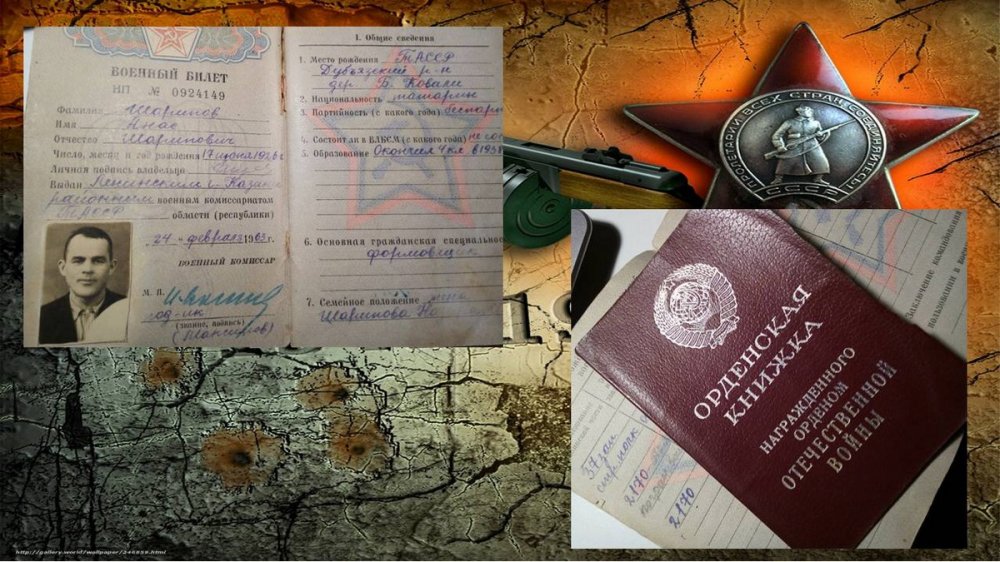 ВОЕННЫЙ БИЛЕТ
НП № 0924149
Фамилия Шарипов
Имя Анас
Отчество Шарипович
Число, месяц и год рождения 17 июня 1926 г
Личная подпись владельца
Выдан Ленинским г. Казани
районным военным комиссариатом
ТАССР области (республики)
24 " февраля 1963 г.
ВОЕННЫЙ КОМИССАР
М. П.
под-ик
(звание, подпись)
(Максимов)
I. Общие сведения
1. Место рождения ТАССР
Дубъязский р-н
дер. Б. Ковали
2. Национальность татарин
3. Партийность (с какого года) беспарт
4. Состоит ли в ВЛКСМ (с какого года) не сос
5. Образование Окончил 4 кл. в 1938
6. Основная гражданская специальнос
формовщик
7. Семейное положение жена
Шарипова На
ПРОЛЕТАРИИ ВСЕХ СТРАН СОЕДИНЯЙТЕСЬ!
СССР
Заключение командования
пользовании в воен
ОРДЕНСКАЯ
КНИЖКА
НАГРАЖДЕННОГО
ОРДЕНОМ
ОТЕЧЕСТВЕННОЙ
ВОЙНЫ
2170
2170
http://gallery.world/wallpaper/246859.html